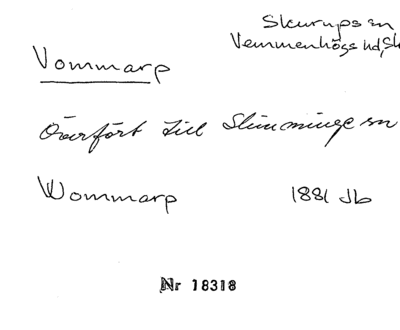 Skurups sn
Vemmenhögs hd, Sk
Vommarp
Överfört till Slimminge sn
Wommarp 1881 Jb
Nr 18318